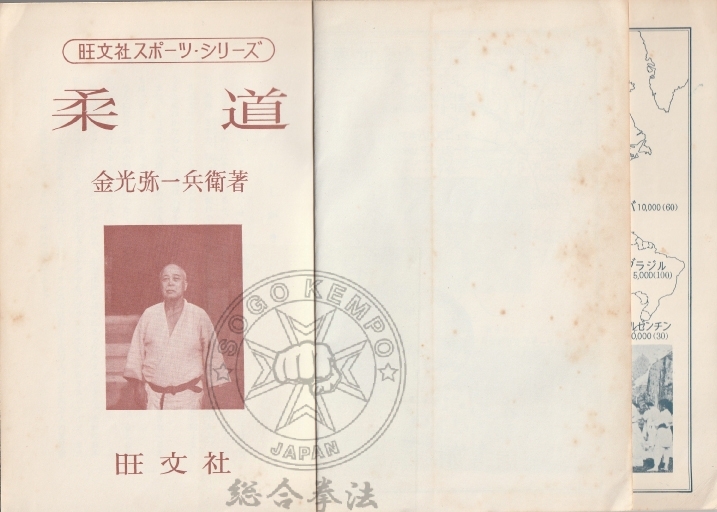 旺文社スポーツ・シリーズ
柔道
金光弥一兵衛著
旺文社
SOGO KEMPO
JAPAN
総合拳法
パ 10,000(60)
ブラジル
5,000(100)
ルゼンチン
0,000(30)